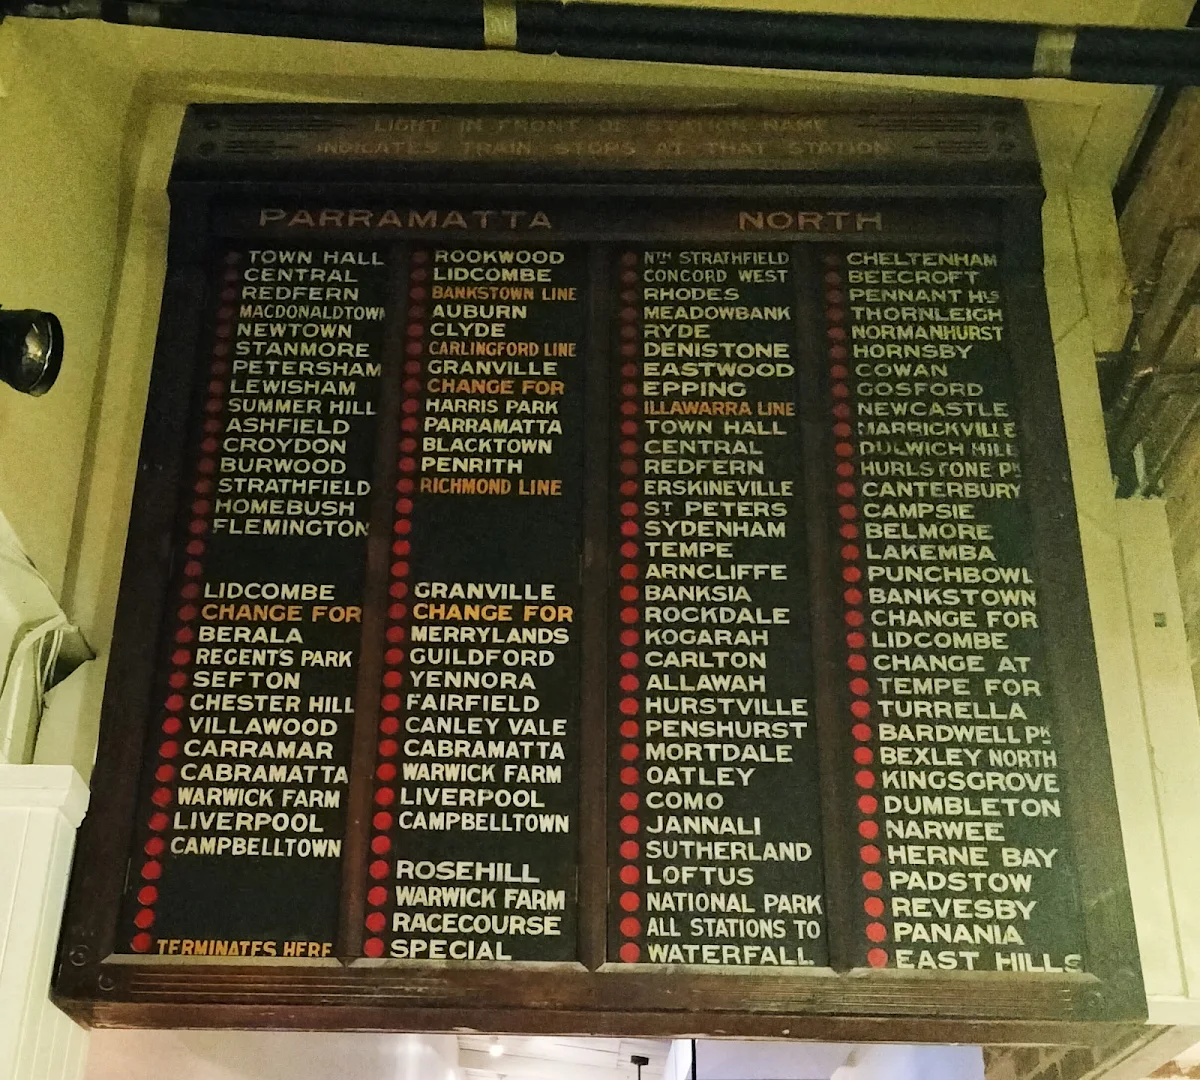 LIGHT IN FRONT OF STATION NAME
INDICATES TRAIN STOPS AT THAT STATION
PARRAMATTA
TOWN HALL
CENTRAL
REDFERN
MACDONALDTOWN
NEWTOWN
STANMORE
PETERSHAM
LEWISHAM
SUMMER HILL
ASHFIELD
CROYDON
BURWOOD
STRATHFIELD
HOMEBUSH
FLEMINGTON
LIDCOMBE
CHANGE FOR
BERALA
REGENTS PARK
SEFTON
CHESTER HILL
VILLAWOOD
CARRAMAR
CABRAMATTA
WARWICK FARM
LIVERPOOL
CAMPBELLTOWN
TERMINATES HERE
ROOKWOOD
LIDCOMBE
BANKSTOWN LINE
AUBURN
CLYDE
CARLINGFORD LINE
GRANVILLE
CHANGE FOR
HARRIS PARK
PARRAMATTA
BLACKTOWN
PENRITH
RICHMOND LINE
GRANVILLE
CHANGE FOR
MERRYLANDS
GUILDFORD
YENNORA
FAIRFIELD
CANLEY VALE
CABRAMATTA
WARWICK FARM
LIVERPOOL
CAMPBELLTOWN
ROSEHILL
WARWICK FARM
RACECOURSE
SPECIAL
NORTH
NTH STRATHFIELD
CONCORD WEST
RHODES
MEADOWBANK
RYDE
DENISTONE
EASTWOOD
EPPING
ILLAWARRA LINE
TOWN HALL
CENTRAL
REDFERN
ERSKINEVILLE
ST PETERS
SYDENHAM
TEMPE
ARNCLIFFE
BANKSIA
ROCKDALE
KOGARAH
CARLTON
ALLAWAH
HURSTVILLE
PENSHURST
MORTDALE
OATLEY
COMO
JANNALI
SUTHERLAND
LOFTUS
NATIONAL PARK
ALL STATIONS TO
WATERFALL
CHELTENHAM
BEECROFT
PENNANT HLS
THORNLEIGH
NORMANHURST
HORNSBY
COWAN
GOSFORD
NEWCASTLE
MARRICKVILLE
DULWICH HILL
HURLSTONE PK
CANTERBURY
CAMPSIE
BELMORE
LAKEMBA
PUNCHBOWL
BANKSTOWN
CHANGE FOR
LIDCOMBE
CHANGE AT
TEMPE FOR
TURRELLA
BARDWELL PK
BEXLEY NORTH
KINGSGROVE
DUMBLETON
NARWEE
HERNE BAY
PADSTOW
REVESBY
PANANIA
EAST HILLS